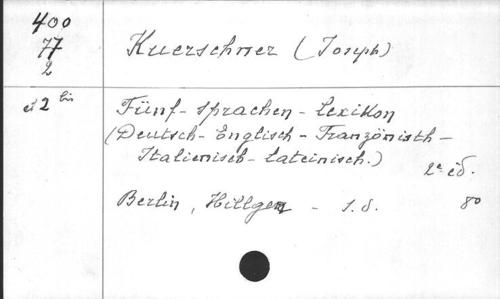 400
77
2
Kuerschner (Joseph)
et 2 bis
Fünf - sprachen - Lexikon
(Deutsch - Englisch - Französisch -
Italienisch - Lateinisch.)
2e éd.
Berlin, Hillger - s.d.
8o